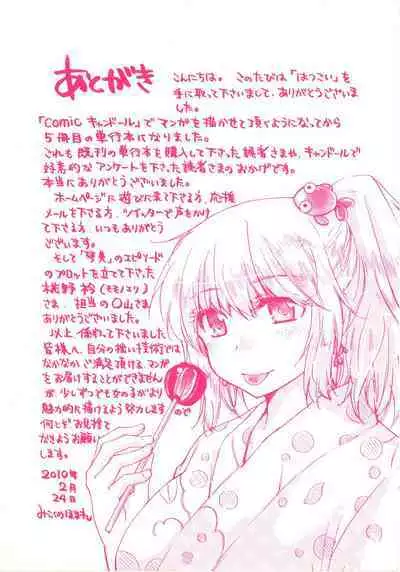 あとがき
こんにちは。このたびは「はつこい」を
手に取って下さいまして、ありがとうござい
ました。
「comic キャンドール」でマンガを描かせて頂くようになってから
5冊目の単行本になりました。
これも既刊の単行本を購入して下さった読者さまや、キャンドールで
好意的なアンケートを下さった読者さまのおかげです。
本当にありがとうございました。
ホームページに遊びに来て下さる方、応援
メールを下さる方、ツイッターで声をかけ
て下さる方、いつもありがとう
ございます。
そして「」のエピソード
のプロットを立てて下さった
桃野 衿(モモノエリ)
さま、担当の〇山さま
ありがとうございました。
以上 係わって下さいました
皆様へ、自分の拙い技術では
なかなかご満足頂ける、マンガ
をお届けすることができません
が、少しずつでも女の子がより
魅力的に描けるよう努力しますので
何とぞお見捨て
なきようお願い
します。
2010年
2月
24日